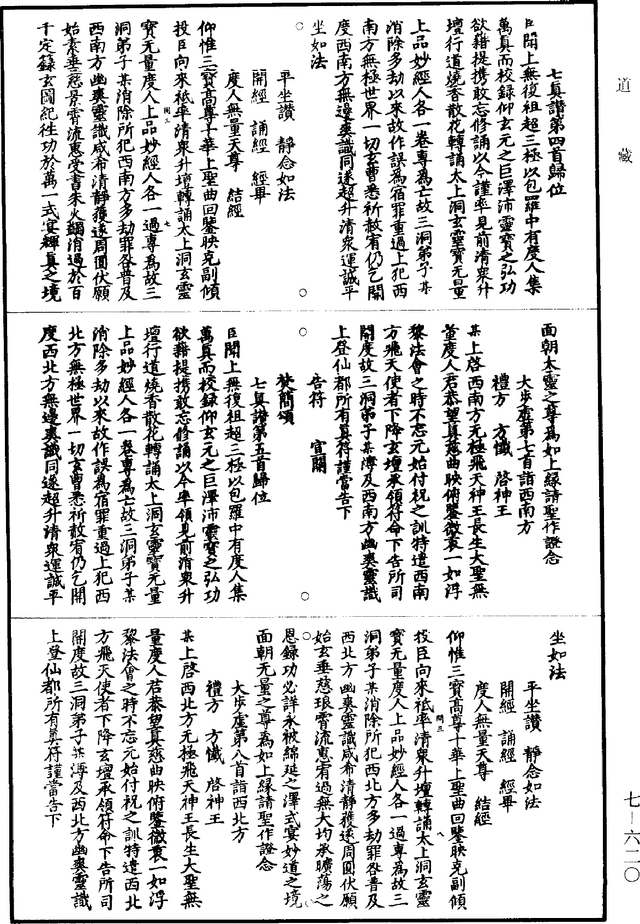 道藏
七真讚第四首歸位
臣聞上無復祖超三極以包羅中有度人集
萬真而校錄仰玄元之巨澤沛靈寶之弘功
欲藉提携敢忘修誦以今謹率見前清衆升
壇行道燒香散花轉誦太上洞玄靈寶無量
上品妙經人各一卷專為亡故三洞弟子某
消除多劫以來故作誤為宿罪重過上犯西
南方無極世界一切玄曹悉祈赦宥仍乞開
度西南方無邊爽識同遂超升清衆運誠平
坐如法
平坐讚　靜念如法
開經　誦經　經畢
度人無量天尊　結經
仰惟三寶高尊十華上聖曲回鑒映克副傾
投臣向來祗率清衆升壇轉誦太上洞玄靈
寶無量度人上品妙經人各一過專為故三
洞弟子某消除所犯西南方多劫罪咎普及
西南方幽爽靈識咸希清靜獲遂周圓伏願
始素垂慈景霄流惠受書朱火蠲消過於百
千定籙玄圖紀往功於萬一式宴輝真之境
面朝太靈之尊為如上緣請聖作證念
大步虛第七首詣西南方
禮方　方懺　啓神王
某上啓西南方無極飛天神王長生大聖無
量度人君恭望真慈曲映俯鑒微衷一如浮
黎法會之時不忘元始付祝之訓特遣西南
方飛天使者下降玄壇承領符命下告所司
開度故三洞弟子某溥及西南方幽爽靈識
上登仙都所有真符謹當告下
告符　宣關
焚簡頌
七真讚第五首歸位
臣聞上無復祖超三極以包羅中有度人集
萬真而校錄仰玄元之巨澤沛靈寶之弘功
欲藉提携敢忘修誦以今率領見前清衆升
壇行道燒香散花轉誦太上洞玄靈寶無量
上品妙經人各一卷專為亡故三洞弟子某
消除多劫以來故作誤為宿罪重過上犯西
北方無極世界一切玄曹悉祈赦宥仍乞開
度西北方無邊爽識同遂超升清衆運誠平
坐如法
平坐讚　靜念如法
開經　誦經　經畢
度人無量天尊　結經
仰惟三寶高尊十華上聖曲回鑒映克副傾
投臣向來祗率清衆升壇轉誦太上洞玄靈
寶無量度人上品妙經人各一過專為故三
洞弟子某消除所犯西北方多劫罪咎普及
西北方幽爽靈識咸希清靜獲遂周圓伏願
始玄垂慈琅霄流惠宥過無大均承曠蕩之
恩錄功必詳永被綿延之澤式宴妙道之境
面朝無量之尊為如上緣請聖作證念
大步虛第八首詣西北方
禮方　方懺　啓神王
某上啓西北方無極飛天神王長生大聖無
量度人君恭望真慈曲映俯鑒微衷一如浮
黎法會之時不忘元始付祝之訓特遣西北
方飛天使者下降玄壇承領符命下告所司
開度故三洞弟子某溥及西北方幽爽靈識
上登仙都所有真符謹當告下
七—六二〇